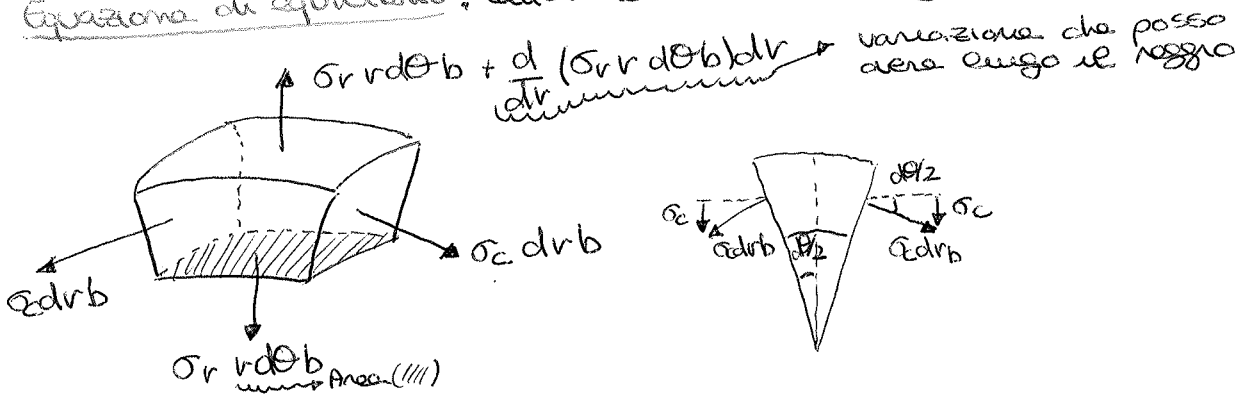 Equazione di equilibrio:
σr r dθ b + d/dr (σr r dθ b) dr → variazione che posso
avere lungo il raggio
σc dr b
σc dr b
σr r dθ b → Area (////)
dθ/2
σc
σc
σc dr b
dθ/2
σc dr b